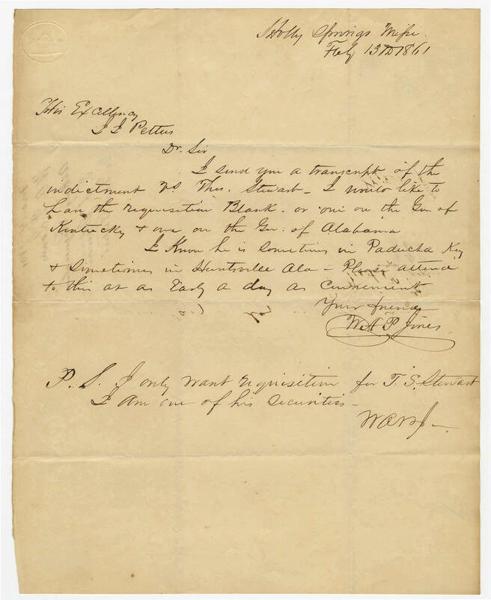 Holly Springs Missi
Feby 13th 1861
His Excellency
J J Pettus
Dr. Sir
I send you a transcript of the
indictment vs Thos. Stewart - I would like to
have the requisition Blank. or one on the Gov of
Kentucky & one on the Gov. of Alabama
I Know he is sometimes in Paducha Ky
& Sometimes in Huntsville Ala - Please attend
to this at as Early a day as Convenient
Your friend
W. P. Jones
P. S. I only want requisition for T. S. Stewart
I am one of his Securities -